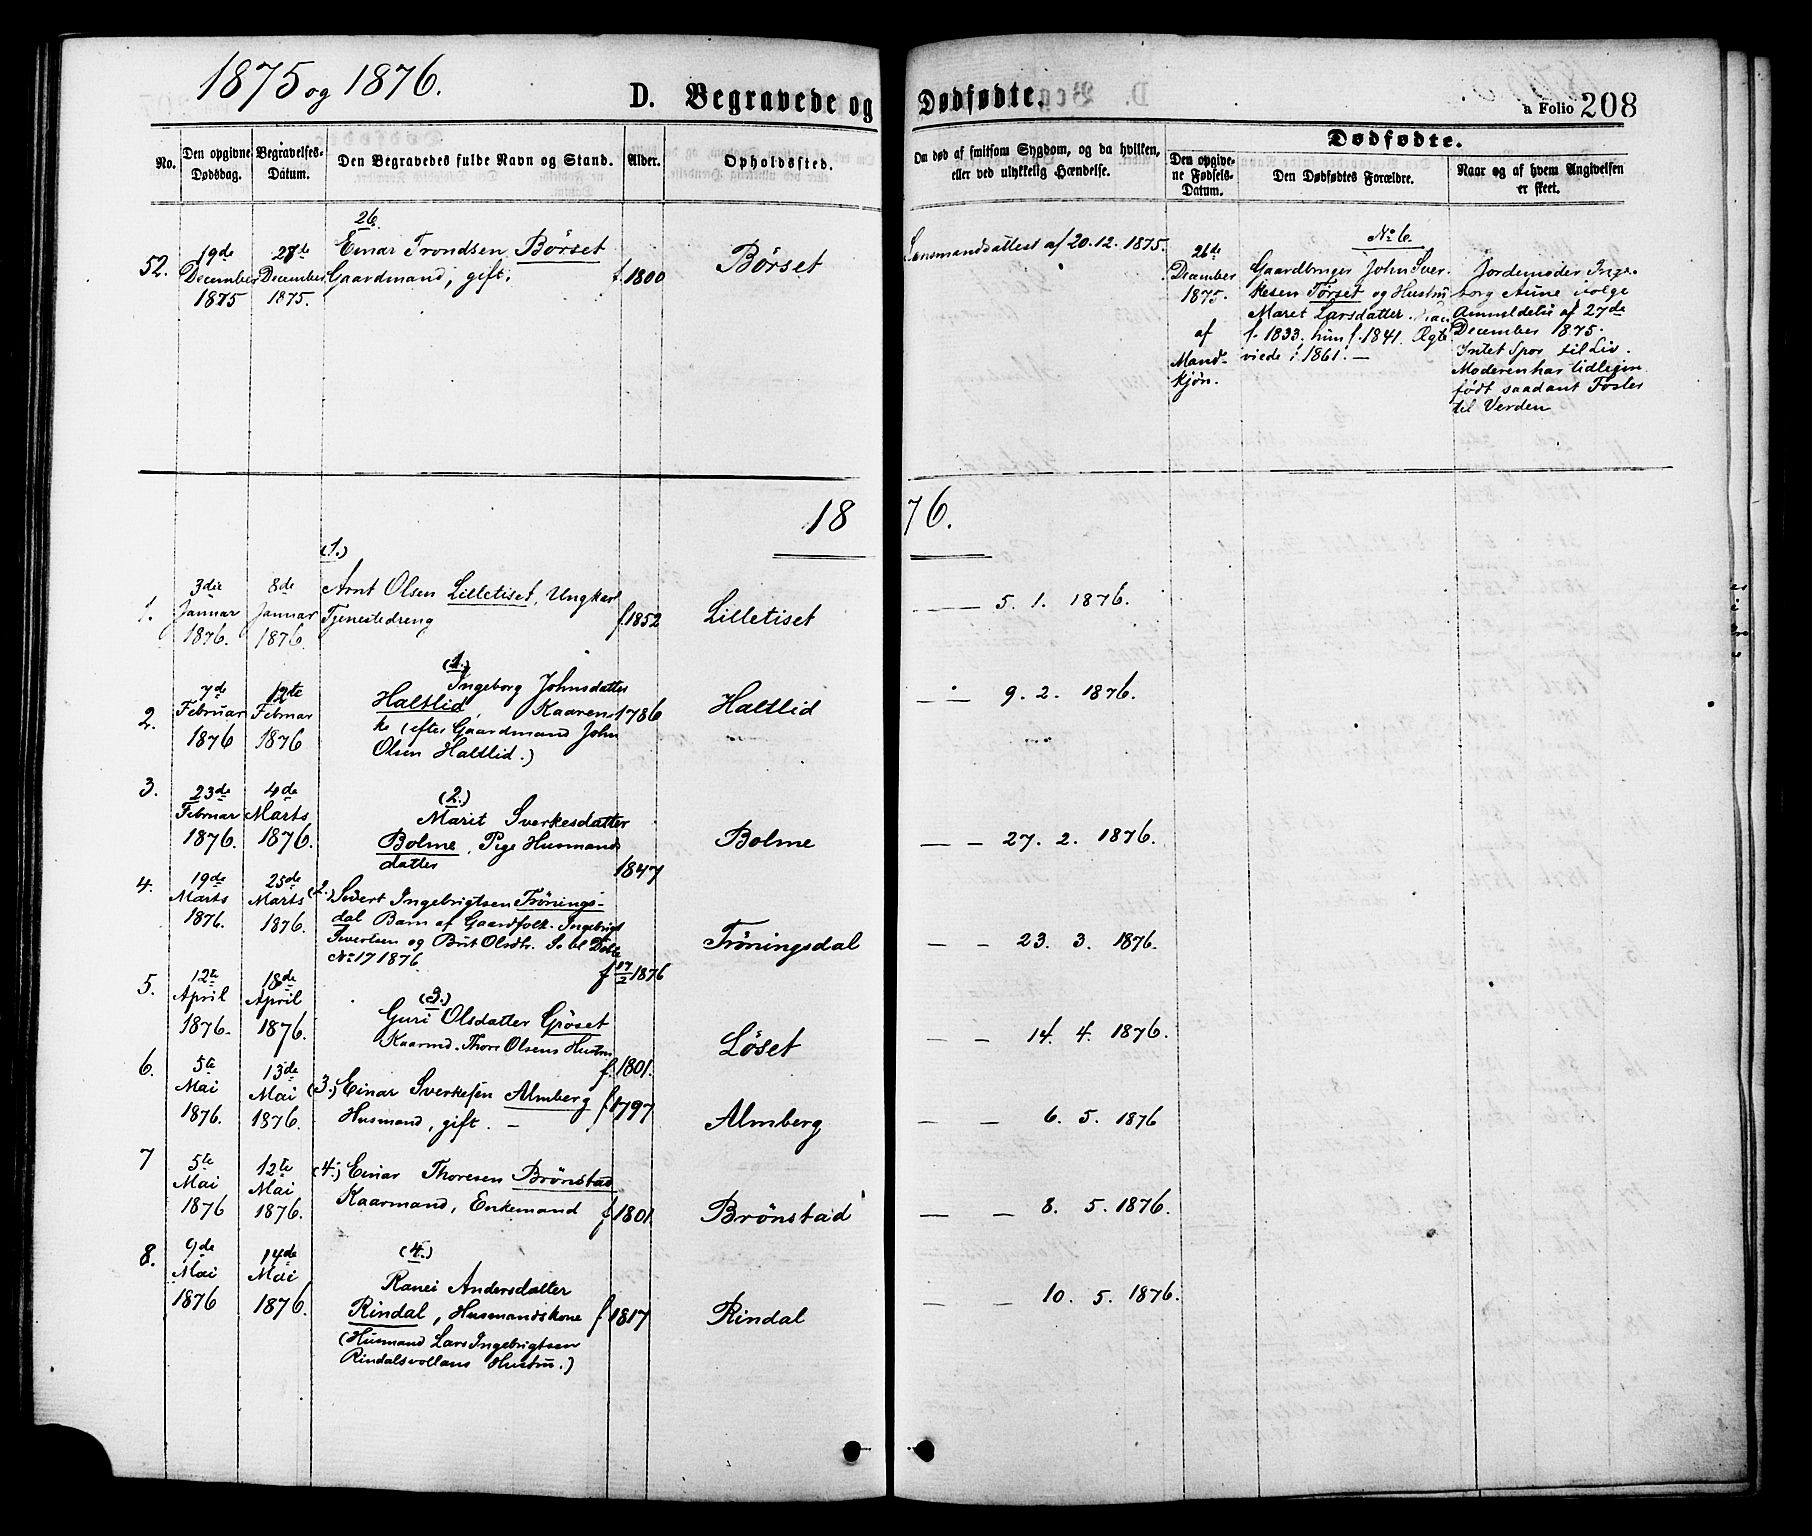 1875 og 1876.
D. Begravede og Dødfødte.
a Folio 208
No.
Den opgivne Dødsdag.
Begravelses-Datum.
Den Begravedes fulde Navn og Stand.
Alder.
Opholdssted.
Om død af smitsom Sygdom, og da hvilken,
eller ved ulykkelig Hændelse.
Dødfødte.
Den opgivne Fødsels-Datum.
Den Dødfødtes Forældre.
Naar og af hvem Angivelsen
er skeet.
26
52.
19de
December
1875
27de
December
1875.
Einar Trondsen Börset
Gaardmand, gift.
f. 1800
Börset
Lensmandsattest af 20.12.1875.
26de
December
1875.
af
Mand-
kjøn.
No 6.
Gaardbruger John Sver-
kesen Törset og Hustru
Maret Larsdatter.
f. 1833, hun f. 1841. Ægte
viede i 1861. —
Jordemoder Inge-
borg Aune ifølge
Anmeldelse af 27de
December 1875.
Intet Spor til Liv.
Moderen har tidligere
født saadant Foster
til Verden
1876.
(1.)
1.
3die
Januar
1876.
8de
Januar
1876.
Arnt Olsen Lilletiset, Ungkarl
Tjenestedreng
f. 1852
Lilletiset
— — 5. 1. 1876.
(1.)
2.
7de
Februar
1876
12te
Februar
1876
Ingeborg Johnsdatter
Haltlid, Kaaren-
ke (efter Gaardmand John
Olsen Haltlid.)
1786
Haltlid
— — 9. 2. 1876.
3.
23de
Februar
1876.
4de
Marts
1876.
(2.)
Marit Sverkesdatter
Bolme, Pige Husmands
datter
1847
Bolme
— — 27. 2. 1876.
4.
19de
Marts
1876.
25de
Marts
1876.
(2.) Sivert Ingebrigtsen Trönings-
dal Barn af Gaardfolk Ingebrigt
Sivertsen og Brit Olsdtr. S. bl. Döbte
No 17 1876.
f. 17/2 1876
Tröningsdal
— — 23. 3. 1876.
5.
12te
April
1876.
18de
April
1876.
(3.)
Guri Olsdatter Gröset
Kaarmd. Thore Olsens Hustru
f. 1801.
Löset
— — 14. 4. 1876.
6.
5te
Mai
1876.
13de
Mai
1876.
(3.) Einar Sverkesen Almberg
Husmand, gift. —
f. 1797
Almberg
— — 6. 5. 1876
7
5te
Mai
1876
12te
Mai
1876.
(4.) Einar Thoresen Brönstad
Kaarmand, Enkemand
f. 1801.
Brönstad
— — 8. 5. 1876.
8.
9de
Mai
1876
14de
Mai
1876.
(4.)
Ranei Andersdatter
Rindal, Husmandskone
(Husmand Lars Ingebrigtsen
Rindalsvollans Hustru.)
f. 1817
Rindal
— — 10. 5. 1876.